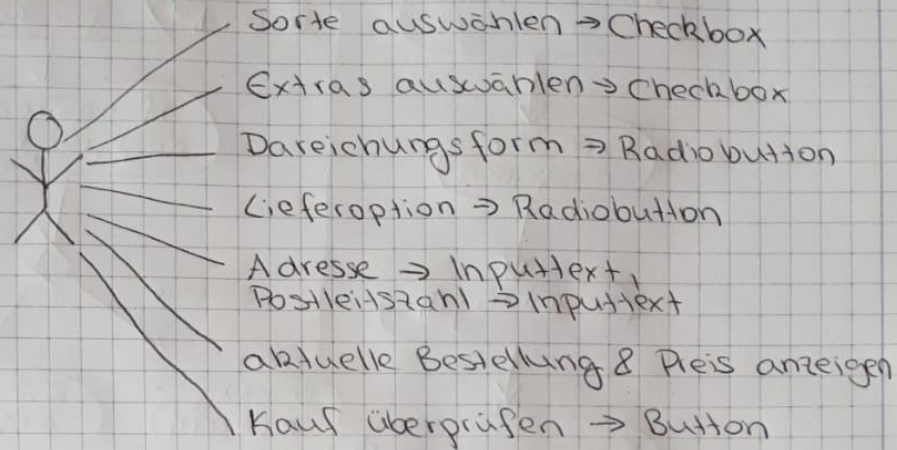 Sorte auswählen → Checkbox
Extras auswählen → Checkbox
Dareichungsform → Radiobutton
Lieferoption → Radiobutton
Adresse → Inputtext,
Postleitszahl → Inputtext
aktuelle Bestellung & Preis anzeigen
Kauf überprüfen → Button